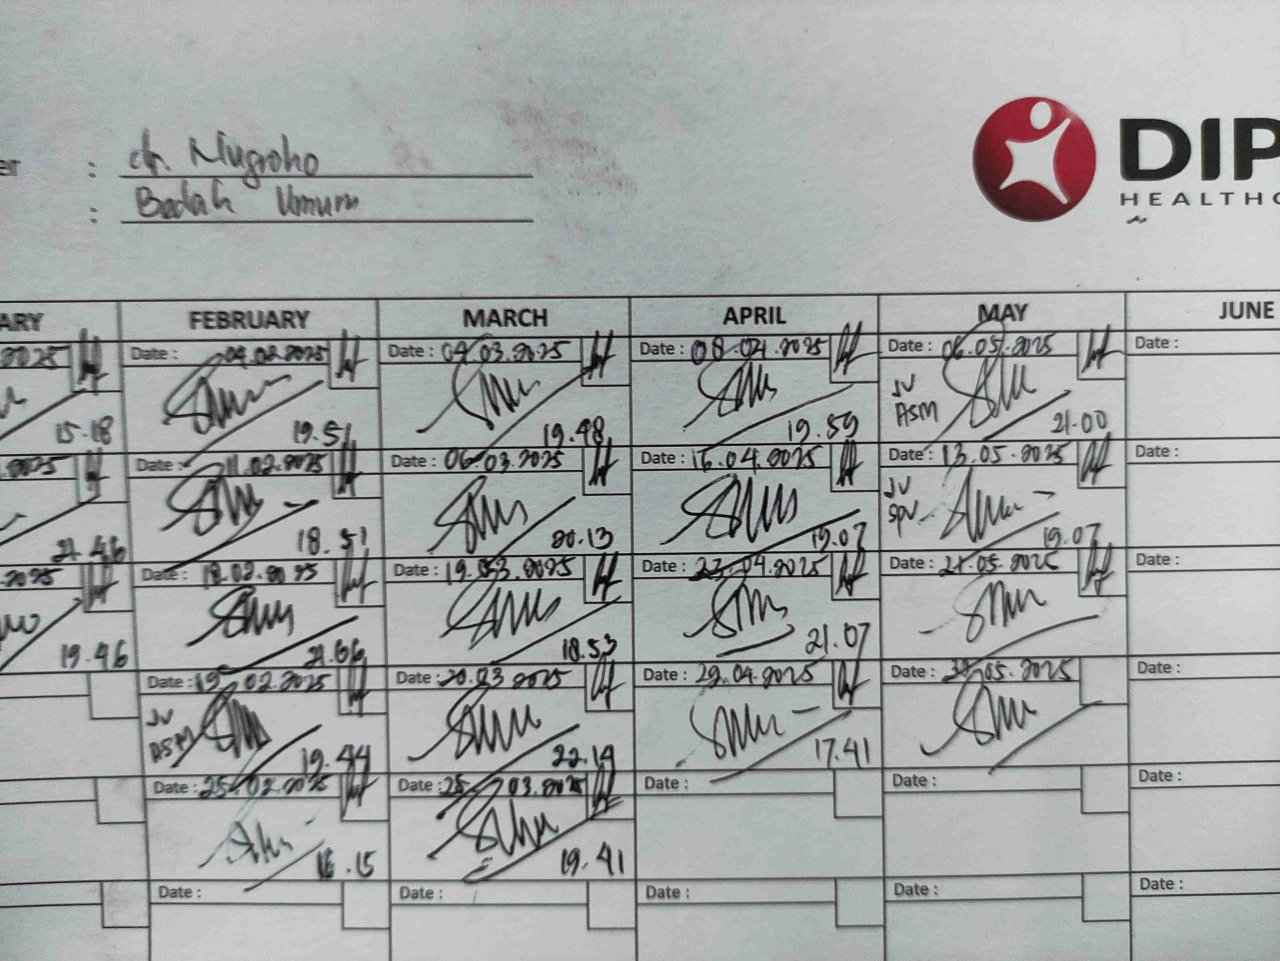 : dr. Nugroho
: Bedah Umum
DIP
HEALTHC
ARY FEBRUARY MARCH APRIL MAY JUNE
2025 Date : 04.02.2025 Date : 04.03.2025 Date : 08.04.2025 Date : 06.05.2025 Date :
JV
ASM
15.18 19.51 19.48 19.59 21.00
2025 Date : 11.02.2025 Date : 06.03.2025 Date : 16.04.2025 Date : 13.05.2025 Date :
JV
SPV
21.46 18.51 20.13 19.07 19.07
2025 Date : 18.02.2025 Date : 19.03.2025 Date : 23.04.2025 Date : 21.05.2025 Date :
19.46 21.06 18.53 21.07
Date : 19.02.2025 Date : 20.03.2025 Date : 29.04.2025 Date : .05.2025 Date :
JV
ASM
19.44 22.19 17.41
Date : 25.02.2025 Date : 25.03.2025 Date : Date : Date :
16.15 19.41
Date : Date : Date : Date : Date :